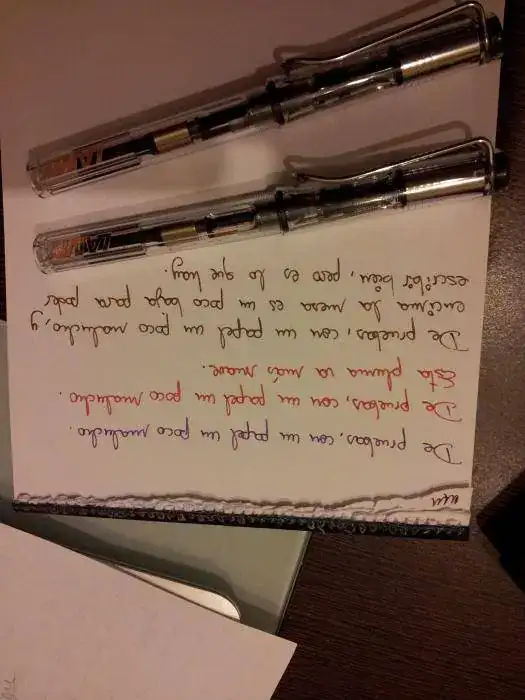 De pruebas, con un papel un poco malucho.
De pruebas, con un papel un poco malucho.
Esta pluma va más suave.
De pruebas, con un papel un poco malucho, y
encima la mesa es un poco baja para poder
escribir bien, pero es lo que hay.